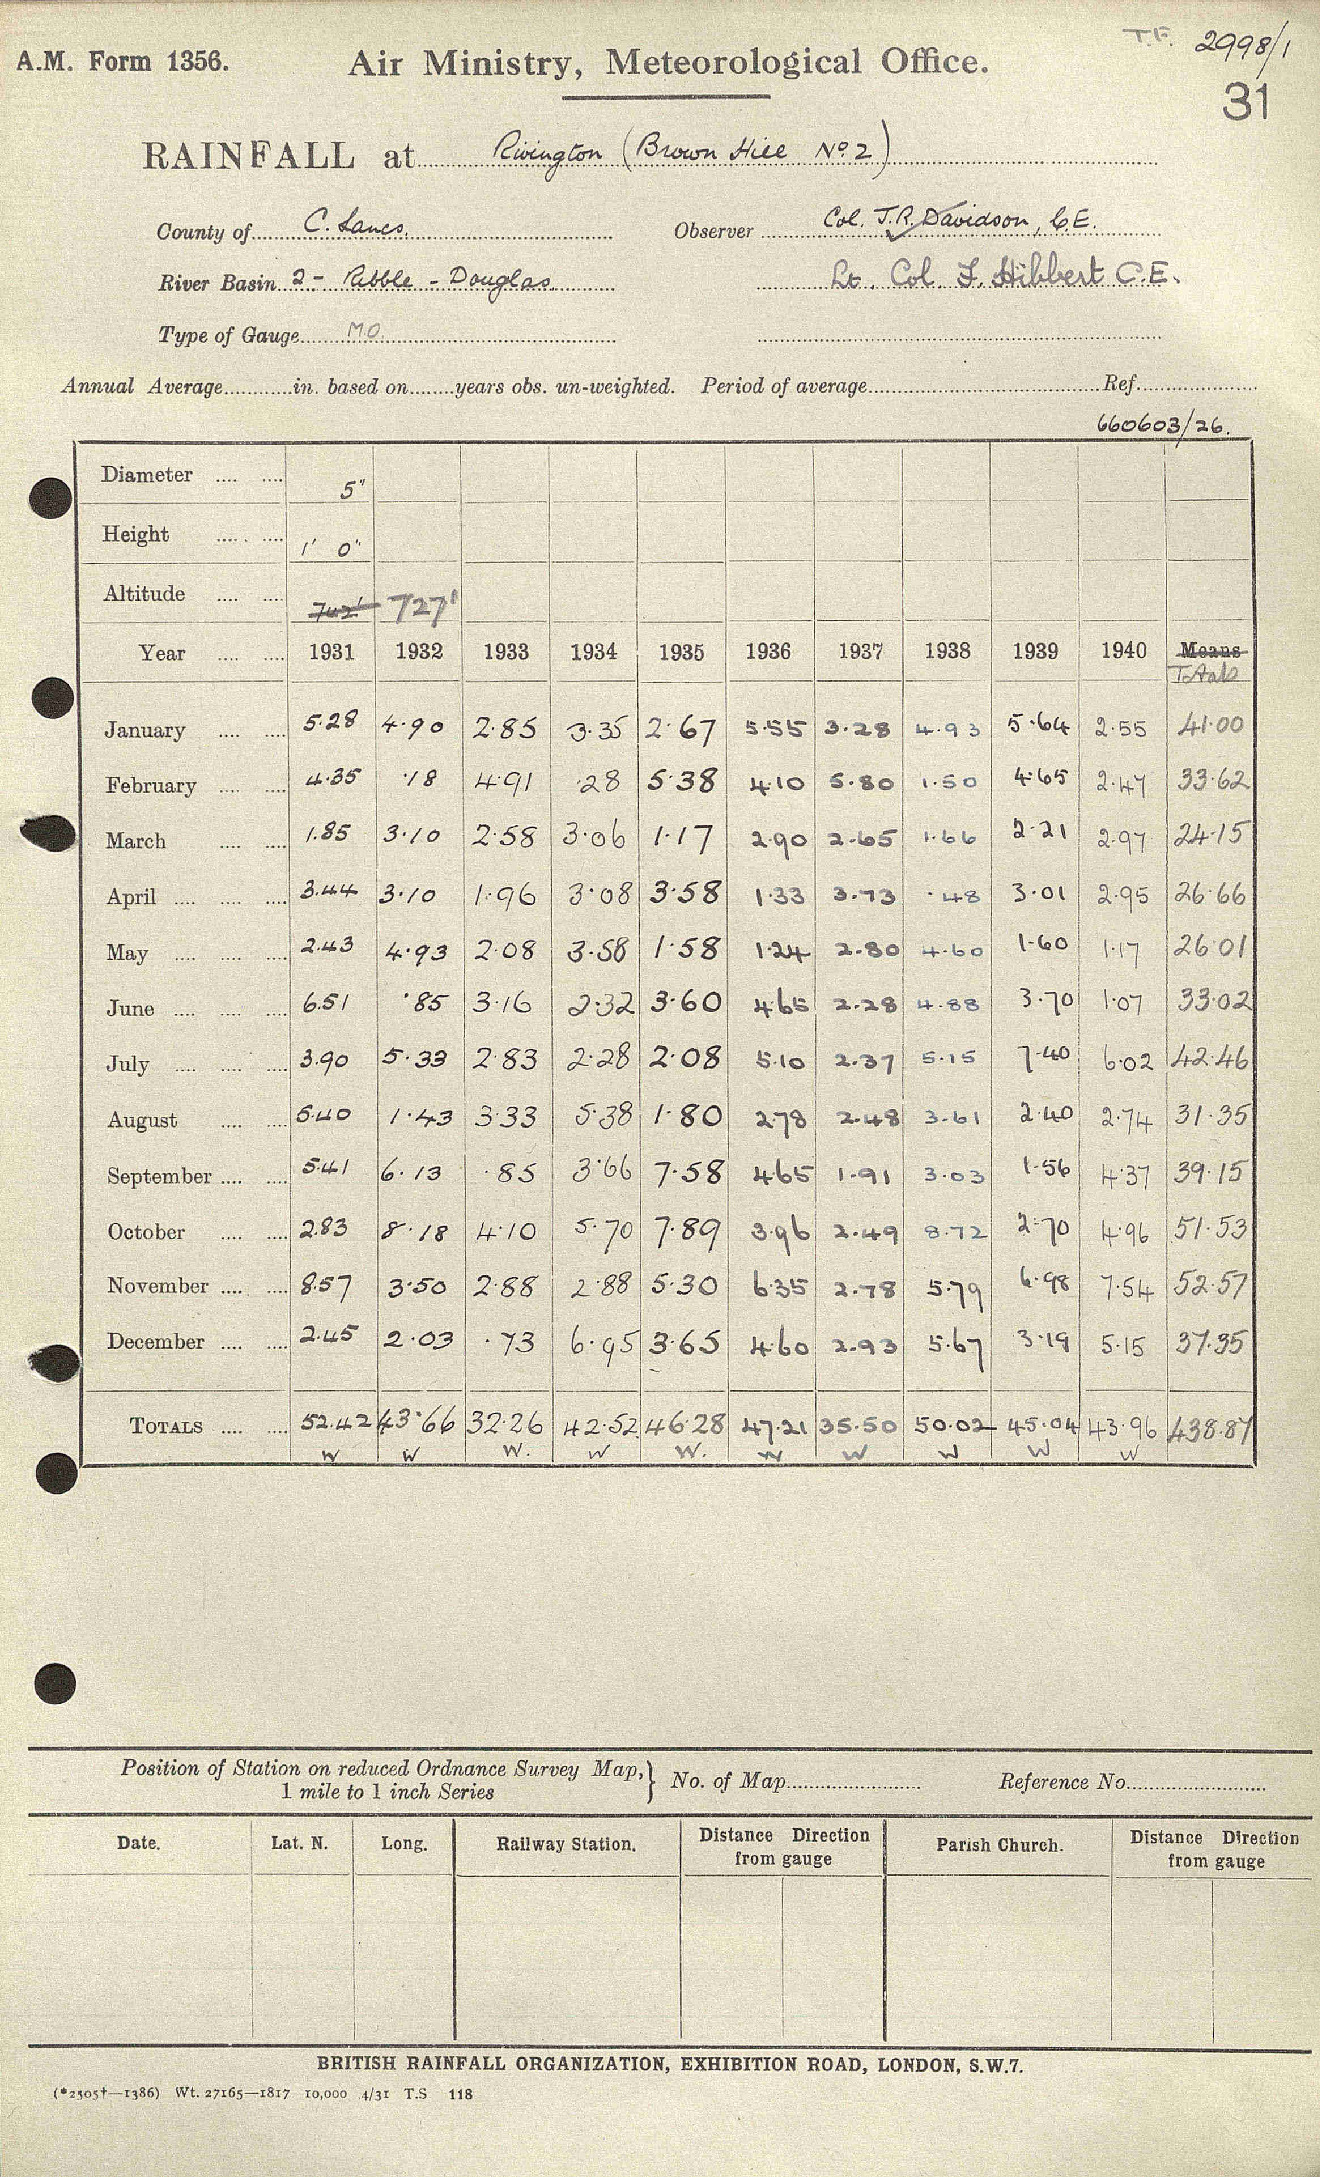 T.F. 2998/1
A.M. Form 1356. Air Ministry, Meteorological Office.
31
RAINFALL at Rivington (Brown Hill No. 2)
County of C. Lancs. Observer Col. J.R. Davidson, C.E.
River Basin 2 - Ribble - Douglas Lt. Col. F. Hibbert C.E.
Type of Gauge M.O.
Annual Average in. based on years obs. un-weighted. Period of average Ref.
660603/26.
Diameter 5"
Height 1' 0"
Altitude 742' 727'
Year 1931 1932 1933 1934 1935 1936 1937 1938 1939 1940 Means
Totals
January 5.28 4.90 2.85 3.35 2.67 5.55 3.28 4.93 5.64 2.55 41.00
February 4.35 .18 4.91 .28 5.38 4.10 5.80 1.50 4.65 2.47 33.62
March 1.85 3.10 2.58 3.06 1.17 2.90 2.65 1.66 2.21 2.97 24.15
April 3.44 3.10 1.96 3.08 3.58 1.33 3.73 .48 3.01 2.95 26.66
May 2.43 4.93 2.08 3.58 1.58 1.24 2.80 4.60 1.60 1.17 26.01
June 6.51 .85 3.16 2.32 3.60 4.65 2.28 4.88 3.70 1.07 33.02
July 3.90 5.33 2.83 2.28 2.08 5.10 2.37 5.15 7.40 6.02 42.46
August 5.40 1.43 3.33 5.38 1.80 2.78 2.48 3.61 2.40 2.74 31.35
September 5.41 6.13 .85 3.66 7.58 4.65 1.91 3.03 1.56 4.37 39.15
October 2.83 8.18 4.10 5.70 7.89 3.96 2.49 8.72 2.70 4.96 51.53
November 8.57 3.50 2.88 2.88 5.30 6.35 2.78 5.79 6.98 7.54 52.57
December 2.45 2.03 .73 6.95 3.65 4.60 2.93 5.67 3.19 5.15 37.35
TOTALS 52.42 43.66 32.26 42.52 46.28 47.21 35.50 50.02 45.04 43.96 438.87
W W W. W W. W W W W W
Position of Station on reduced Ordnance Survey Map, } No. of Map Reference No.
1 mile to 1 inch Series
Date. Lat. N. Long. Railway Station. Distance Direction Parish Church. Distance Direction
from gauge from gauge
BRITISH RAINFALL ORGANIZATION, EXHIBITION ROAD, LONDON, S.W.7.
(*2305†—1386) Wt. 27165—1817 10,000 4/31 T.S 118